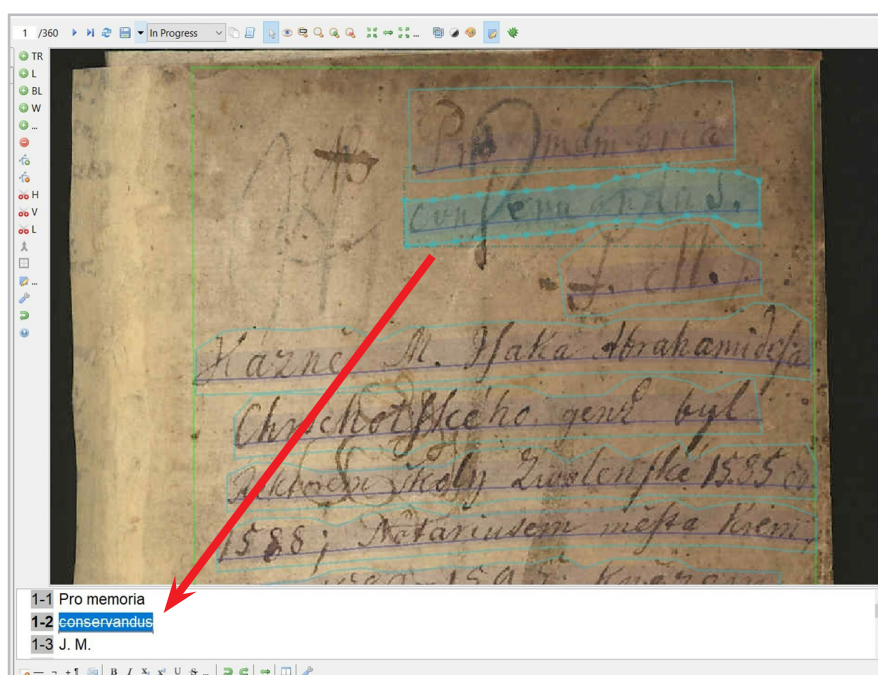 1 /360 In Progress
TR
L
BL
W
...
H
V
L
...
Pro memoria
conservandus.
J. M.
Kazně M. Iſaka Abrahamideſa
genž byl
Rektorem Zwolenſké 1585
1588; Notariusem měſta Krem,
1-1 Pro memoria
1-2 conservandus
1-3 J. M.